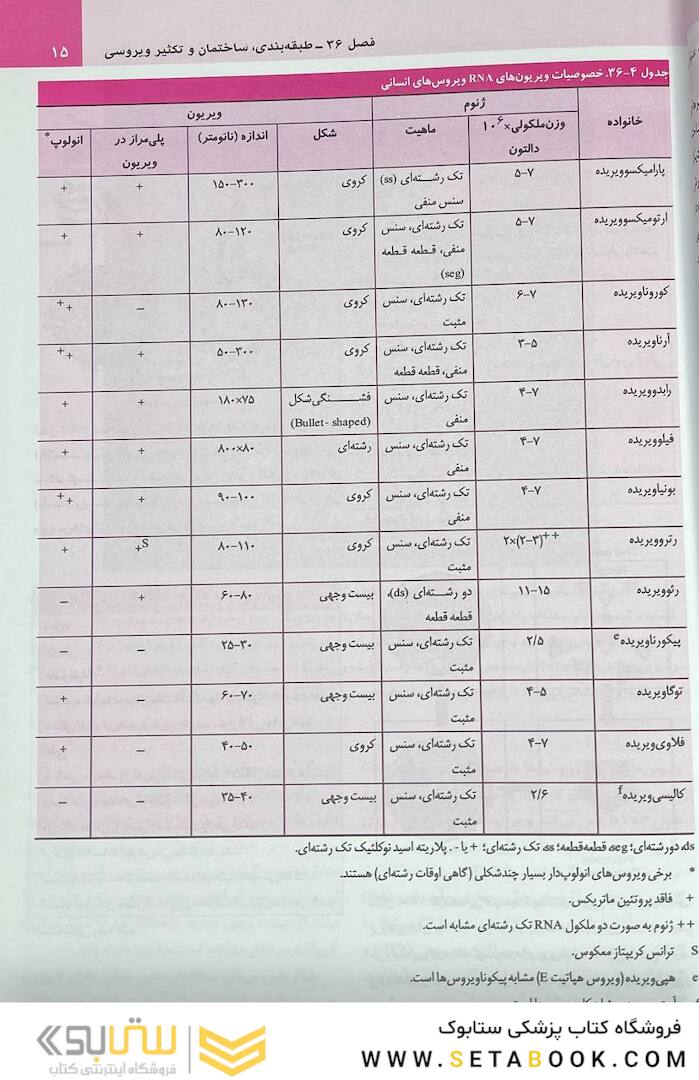 فصل ۳۶ ـ طبقه‌بندی، ساختمان و تکثیر ویروسی ۱۵
جدول ۴-۳۶. خصوصیات ویریون‌های RNA ویروس‌های انسانی
ژنوم ویریون
خانواده وزن‌ملکولی×۱۰⁶ دالتون ماهیت شکل اندازه (نانومتر) پلی‌مراز در ویریون انولوپ*
پارامیکسوویریده ۵-۷ تک رشته‌ای (ss) کروی ۱۵۰-۳۰۰ + +
سنس منفی
ارتومیکسوویریده ۵-۷ تک رشته‌ای، سنس کروی ۸۰-۱۲۰ + +
منفی، قطعه قطعه
(seg)
کوروناویریده ۶-۷ تک رشته‌ای، سنس کروی ۸۰-۱۳۰ – +⁺
مثبت
آرناویریده ۳-۵ تک رشته‌ای، سنس کروی ۵۰-۳۰۰ + +⁺
منفی، قطعه قطعه
رابدوویریده ۴-۷ تک رشته‌ای، سنس فشنگی‌شکل ۱۸۰×۷۵ + +
منفی (Bullet- shaped)
فیلوویریده ۴-۷ تک رشته‌ای، سنس رشته‌ای ۸۰۰×۸۰ + +
منفی
بونیاویریده ۴-۷ تک رشته‌ای، سنس کروی ۹۰-۱۰۰ + +⁺
منفی
رتروویریده ۲×(۲-۳)⁺⁺ تک رشته‌ای، سنس کروی ۸۰-۱۱۰ +S +
مثبت
رئوویریده ۱۱-۱۵ دو رشته‌ای (ds)، بیست وجهی ۶۰-۸۰ + –
قطعه قطعه
پیکورناویریدهe ۲/۵ تک رشته‌ای، سنس بیست وجهی ۲۵-۳۰ – –
مثبت
توگاویریده ۴-۵ تک رشته‌ای، سنس بیست وجهی ۶۰-۷۰ – +
مثبت
فلاوی‌ویریده ۴-۷ تک رشته‌ای، سنس کروی ۴۰-۵۰ – +
مثبت
کالیسی‌ویریدهf ۲/۶ تک رشته‌ای، سنس بیست وجهی ۳۵-۴۰ – –
مثبت
ds، دورشته‌ای؛ seg، قطعه‌قطعه؛ ss، تک رشته‌ای؛ + یا -، پلاریته اسید نوکلئیک تک رشته‌ای.
* برخی ویروس‌های انولوپ‌دار بسیار چندشکلی (گاهی اوقات رشته‌ای) هستند.
+ فاقد پروتئین ماتریکس.
++ ژنوم به صورت دو ملکول RNA تک رشته‌ای مشابه است.
S ترانس کریپتاز معکوس.
e هپی‌ویریده (ویروس هپاتیت E) مشابه پیکوناویروس‌ها است.
فروشگاه کتاب پزشکی ستابوک
WWW.SETABOOK.COM
ستابوک
فروشگاه اینترنتی کتاب